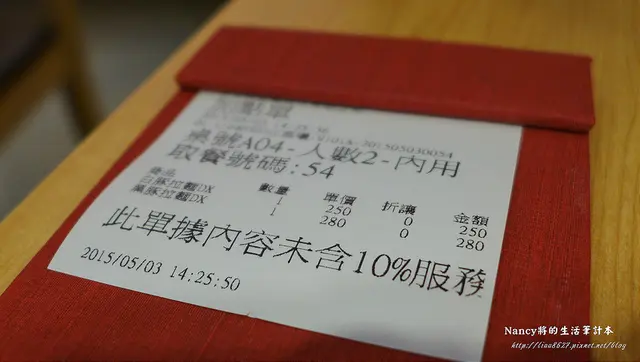 點單
201505030054
桌號A04-人數2-內用
取餐號碼:54
商品 數量 單價 折讓 金額
白豚拉麵DX 1 250 0 250
黑豚拉麵DX 1 280 0 280
此單據內容未含10%服務
2015/05/03 14:25:50
Nancy將的生活筆計本
http://liaa8627.pixnet.net/blog